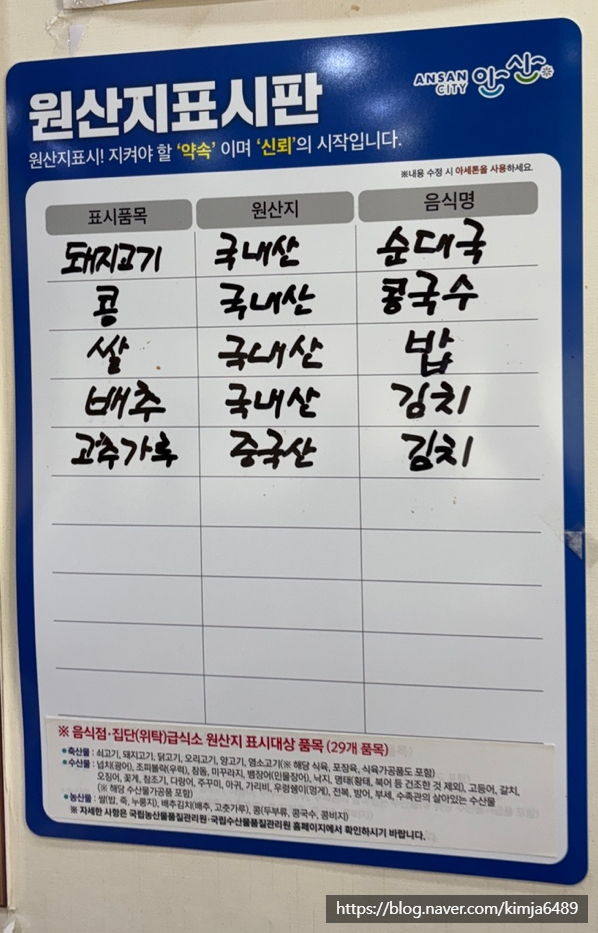 원산지표시판
ANSAN CITY 안산
원산지표시! 지켜야 할 '약속' 이며 '신뢰'의 시작입니다.
※내용 수정 시 아세톤을 사용하세요.
표시품목 원산지 음식명
돼지고기 국내산 순대국
콩 국내산 콩국수
쌀 국내산 밥
배추 국내산 김치
고추가루 중국산 김치
※ 음식점·집단(위탁)급식소 원산지 표시대상 품목 (29개 품목)
●축산물 : 쇠고기, 돼지고기, 닭고기, 오리고기, 양고기, 염소고기(※ 해당 식육, 포장육, 식육가공품도 포함)
●수산물 : 넙치(광어), 조피볼락(우럭), 참돔, 미꾸라지, 뱀장어(민물장어), 낙지, 명태(황태, 북어 등 건조한 것 제외), 고등어, 갈치,
오징어, 꽃게, 참조기, 다랑어, 주꾸미, 아귀, 가리비, 우렁쉥이(멍게), 전복, 방어, 부세, 수족관의 살아있는 수산물
(※ 해당 수산물가공품 포함)
●농산물 : 쌀(밥, 죽, 누룽지), 배추김치(배추, 고춧가루), 콩(두부류, 콩국수, 콩비지)
※ 자세한 사항은 국립농산물품질관리원·국립수산물품질관리원 홈페이지에서 확인하시기 바랍니다.
https://blog.naver.com/kimja6489